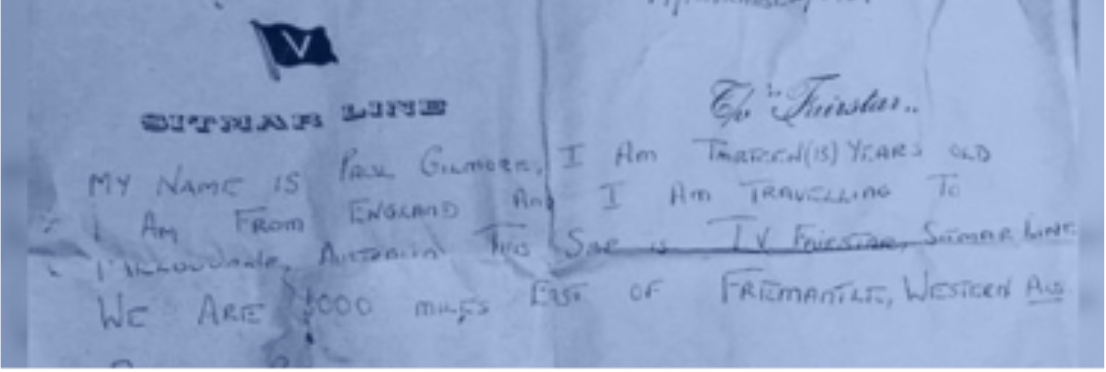 V
SITMAR LINE
T/v "Fairstar"
MY NAME IS PAUL GILMORE, I AM THIRTEEN (13) YEARS OLD
I AM FROM ENGLAND AND I AM TRAVELLING TO
AUSTRALIA THIS SHIP IS TV FAIRSTAR, SITMAR LINE
WE ARE 1000 MILES EAST OF FREMANTLE, WESTERN AUS